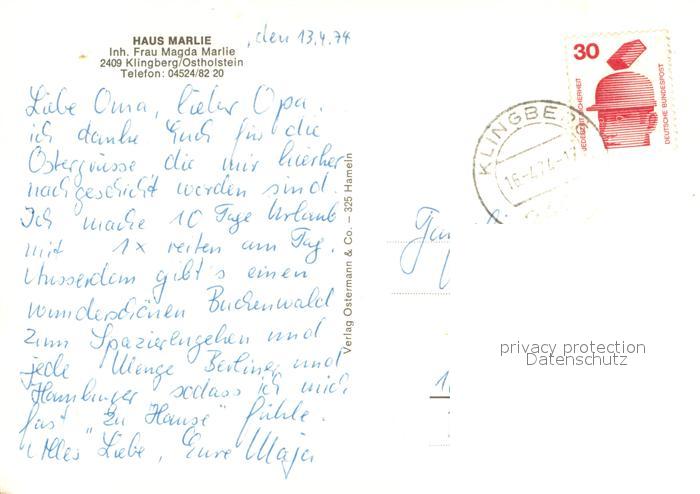 HAUS MARLIE
Inh. Frau Magda Marlie
2409 Klingberg/Ostholstein
Telefon: 04524/82 20
, den 13.4.74
Liebe Oma, lieber Opa.
ich danke Euch für die
Ostergrüsse die mir hierher
nachgeschickt worden sind.
Ich mache 10 Tage Urlaub
mit 1x reiten am Tag.
Ausserdem gibt's einen
wunderschönen Buchenwald
zum Spazierengehen und
jede Menge Berliner und
Hamburger sodass ich mich
fast "zu Hause" fühle.
Alles Liebe, Eure Maja
Verlag Ostermann & Co. – 325 Hameln
30
JEDERZEIT SICHERHEIT
DEUTSCHE BUNDESPOST
KLINGBERG
16.4.74
privacy protection
Datenschutz